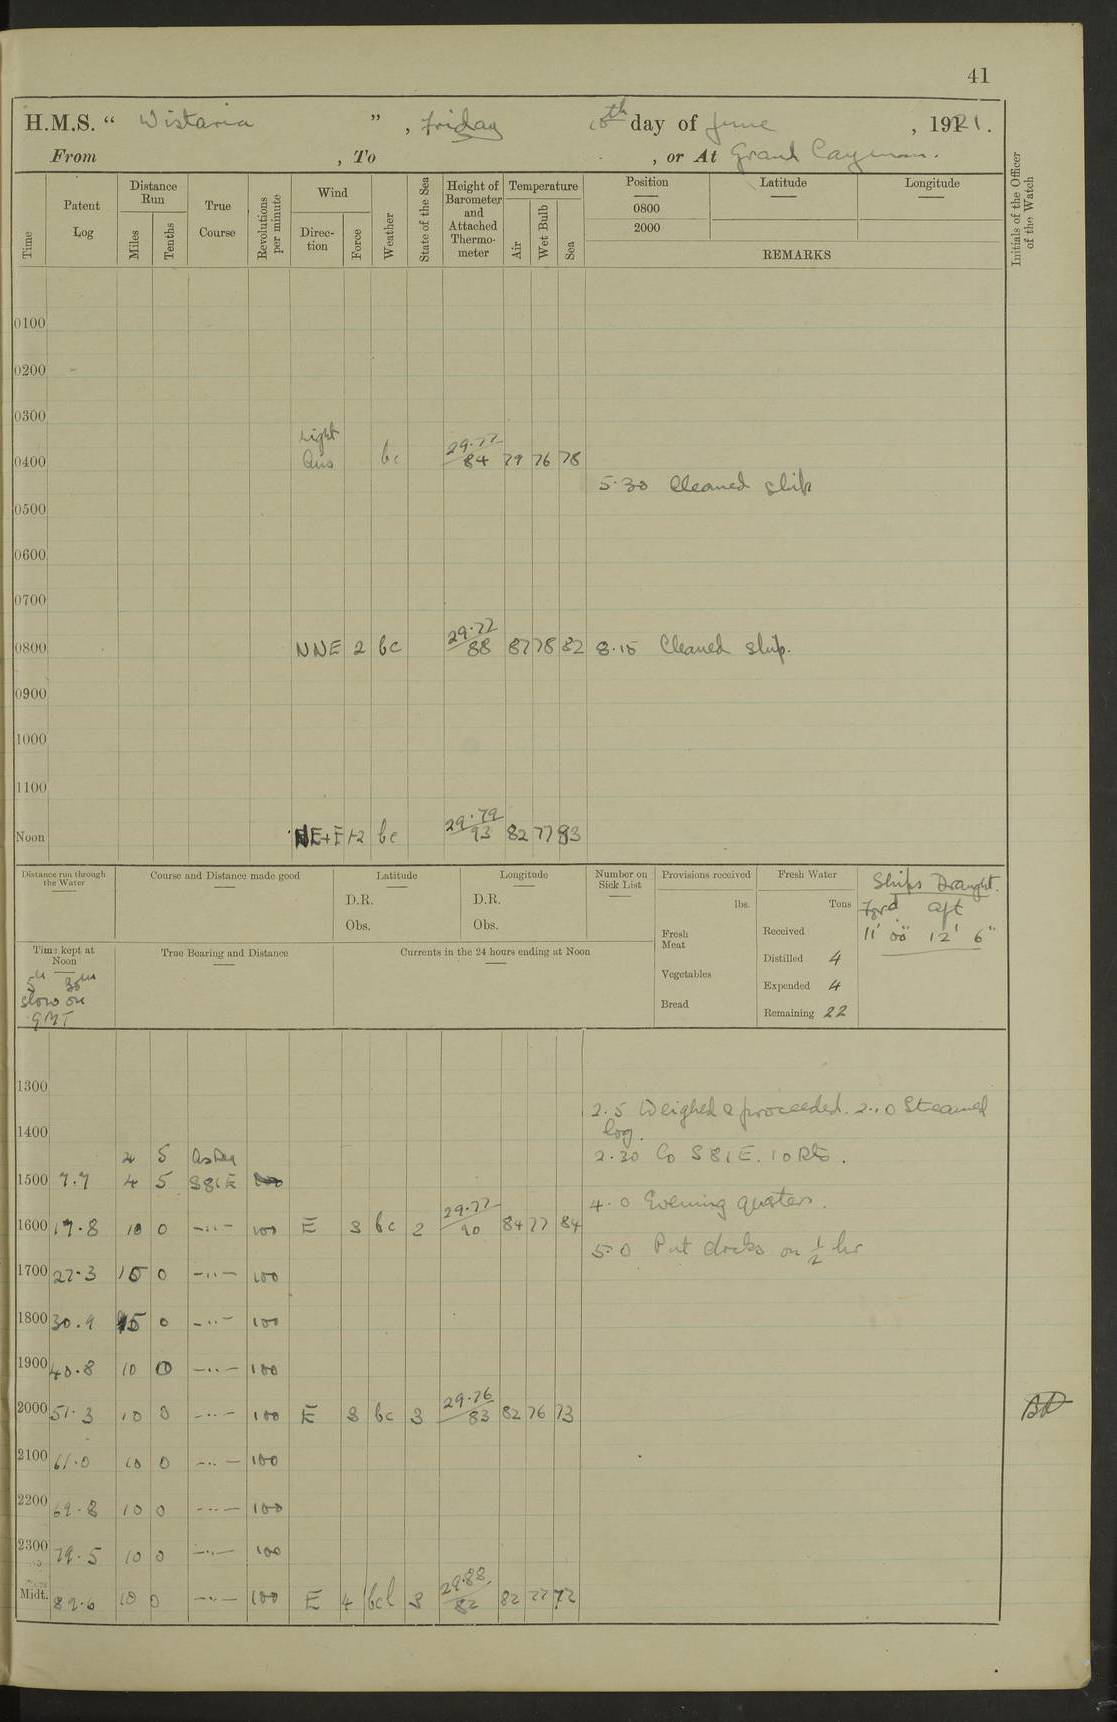 41
H.M.S. " Wistaria " , Friday 10th day of June , 1921.
From , To , or At Grand Cayman.
Time
Patent Log
Distance Run
Miles
Tenths
True Course
Revolutions per minute
Wind
Direction
Force
Weather
State of the Sea
Height of Barometer and Attached Thermometer
Temperature
Air
Wet Bulb
Sea
Position
0800
2000
Latitude
Longitude
REMARKS
Initials of the Officer of the Watch
0100
0200
0300
0400 Light airs bc 29.77/84 79 76 78
5.30 Cleaned ship
0500
0600
0700
0800 NNE 2 bc 29.77/88 87 78 82 8.15 Cleaned ship.
0900
1000
1100
Noon NE+E 1-2 bc 29.79/93 82 77 83
Distance run through the Water
Course and Distance made good
Latitude
D.R.
Obs.
Longitude
D.R.
Obs.
Number on Sick List
Provisions received
lbs.
Fresh Meat
Vegetables
Bread
Fresh Water
Tons
Received
Distilled 4
Expended 4
Remaining 22
Ships Draught.
Ford aft
11' 00" 12' 6"
Time kept at Noon
5h 30m
slow on
GMT
True Bearing and Distance
Currents in the 24 hours ending at Noon
1300
2.5 Weighed & proceeded. 2.10 Streamed
log.
1400
4 5
2.30 Co S81E. 10 Kts.
1500 7.7 4 5 S81E
4.0 Evening quarters.
1600 17.8 10 0 -"- 100 E 3 bc 2 29.77/90 84 77 84
5.0 Put clocks on 1/2 hr
1700 27.3 10 0 -"- 100
1800 30.9 15 0 -"- 100
1900 40.8 10 0 -"- 100
2000 51.3 10 0 -"- 100 E 3 bc 3 29.76/83 82 76 73
2100 61.0 10 0 -"- 100
2200 69.8 10 0 -"- 100
2300 79.5 10 0 -"- 100
Midt. 89.6 10 0 -"- 100 E 4 bcl 3 29.88/82 82 77 72